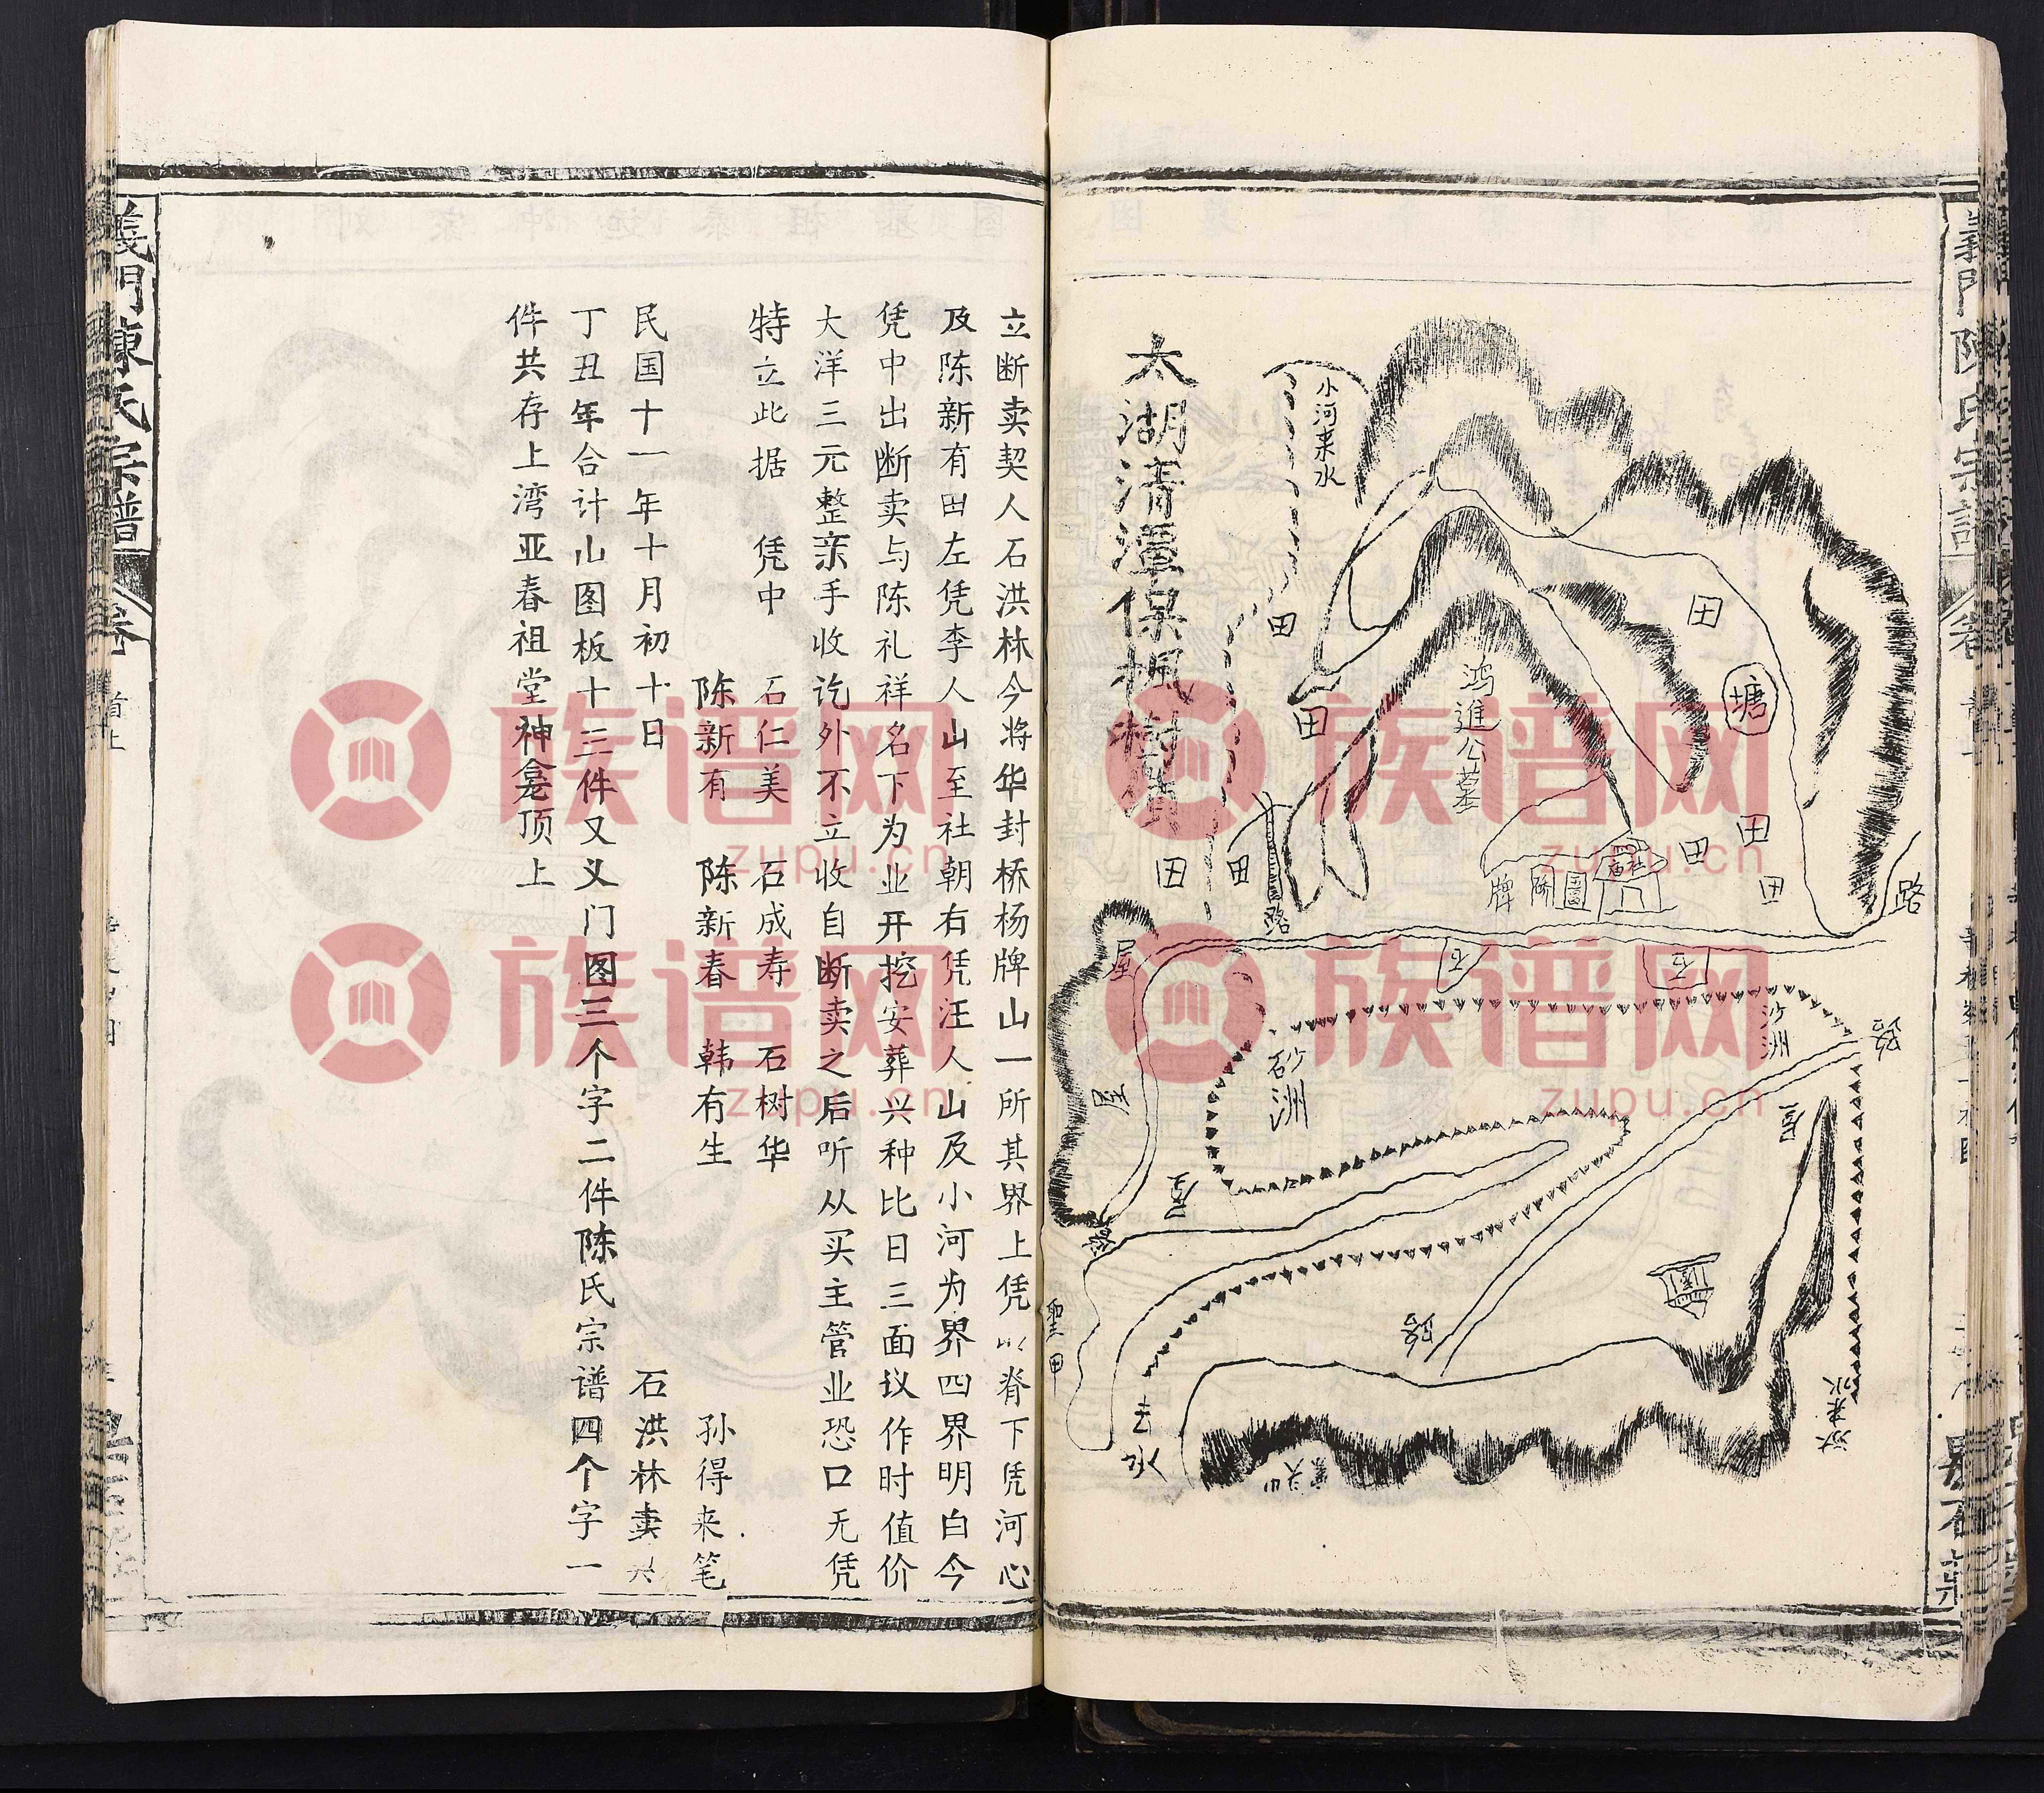 太湖清潭保枫树
小河来水
田
田
田
田
路
鸿進公墓
田
塘
田
田
田
牌
圖
路
石
石
屋
屋
屋
砂洲
沙洲
路
路
聖田
来水
義門陳氏宗譜
卷
立断卖契人石洪林今将华封桥杨牌山一所其界上凭山脊下凭河心
及陈新有田左凭李人山至社朝右凭汪人山及小河为界四界明白今
凭中出断卖与陈礼祥名下为业开挖安葬兴种比日三面议作时值价
大洋三元整亲手收讫外不立收自断卖之后听从买主管业恐口无凭
特立此据 凭中 石仁美 石成寿 石树华
陈新有 陈新春 韩有生 孙得来笔
民国十一年十月初十日 石洪林卖
丁丑年合计山图板十三件又义门图三个字二件陈氏宗谱四个字一
件共存上湾亚春祖堂神龛顶上
義門陳氏宗譜
卷首上
族谱网
zupu.cn
族谱网
zupu.cn
族谱网
zupu.cn
族谱网
zupu.cn